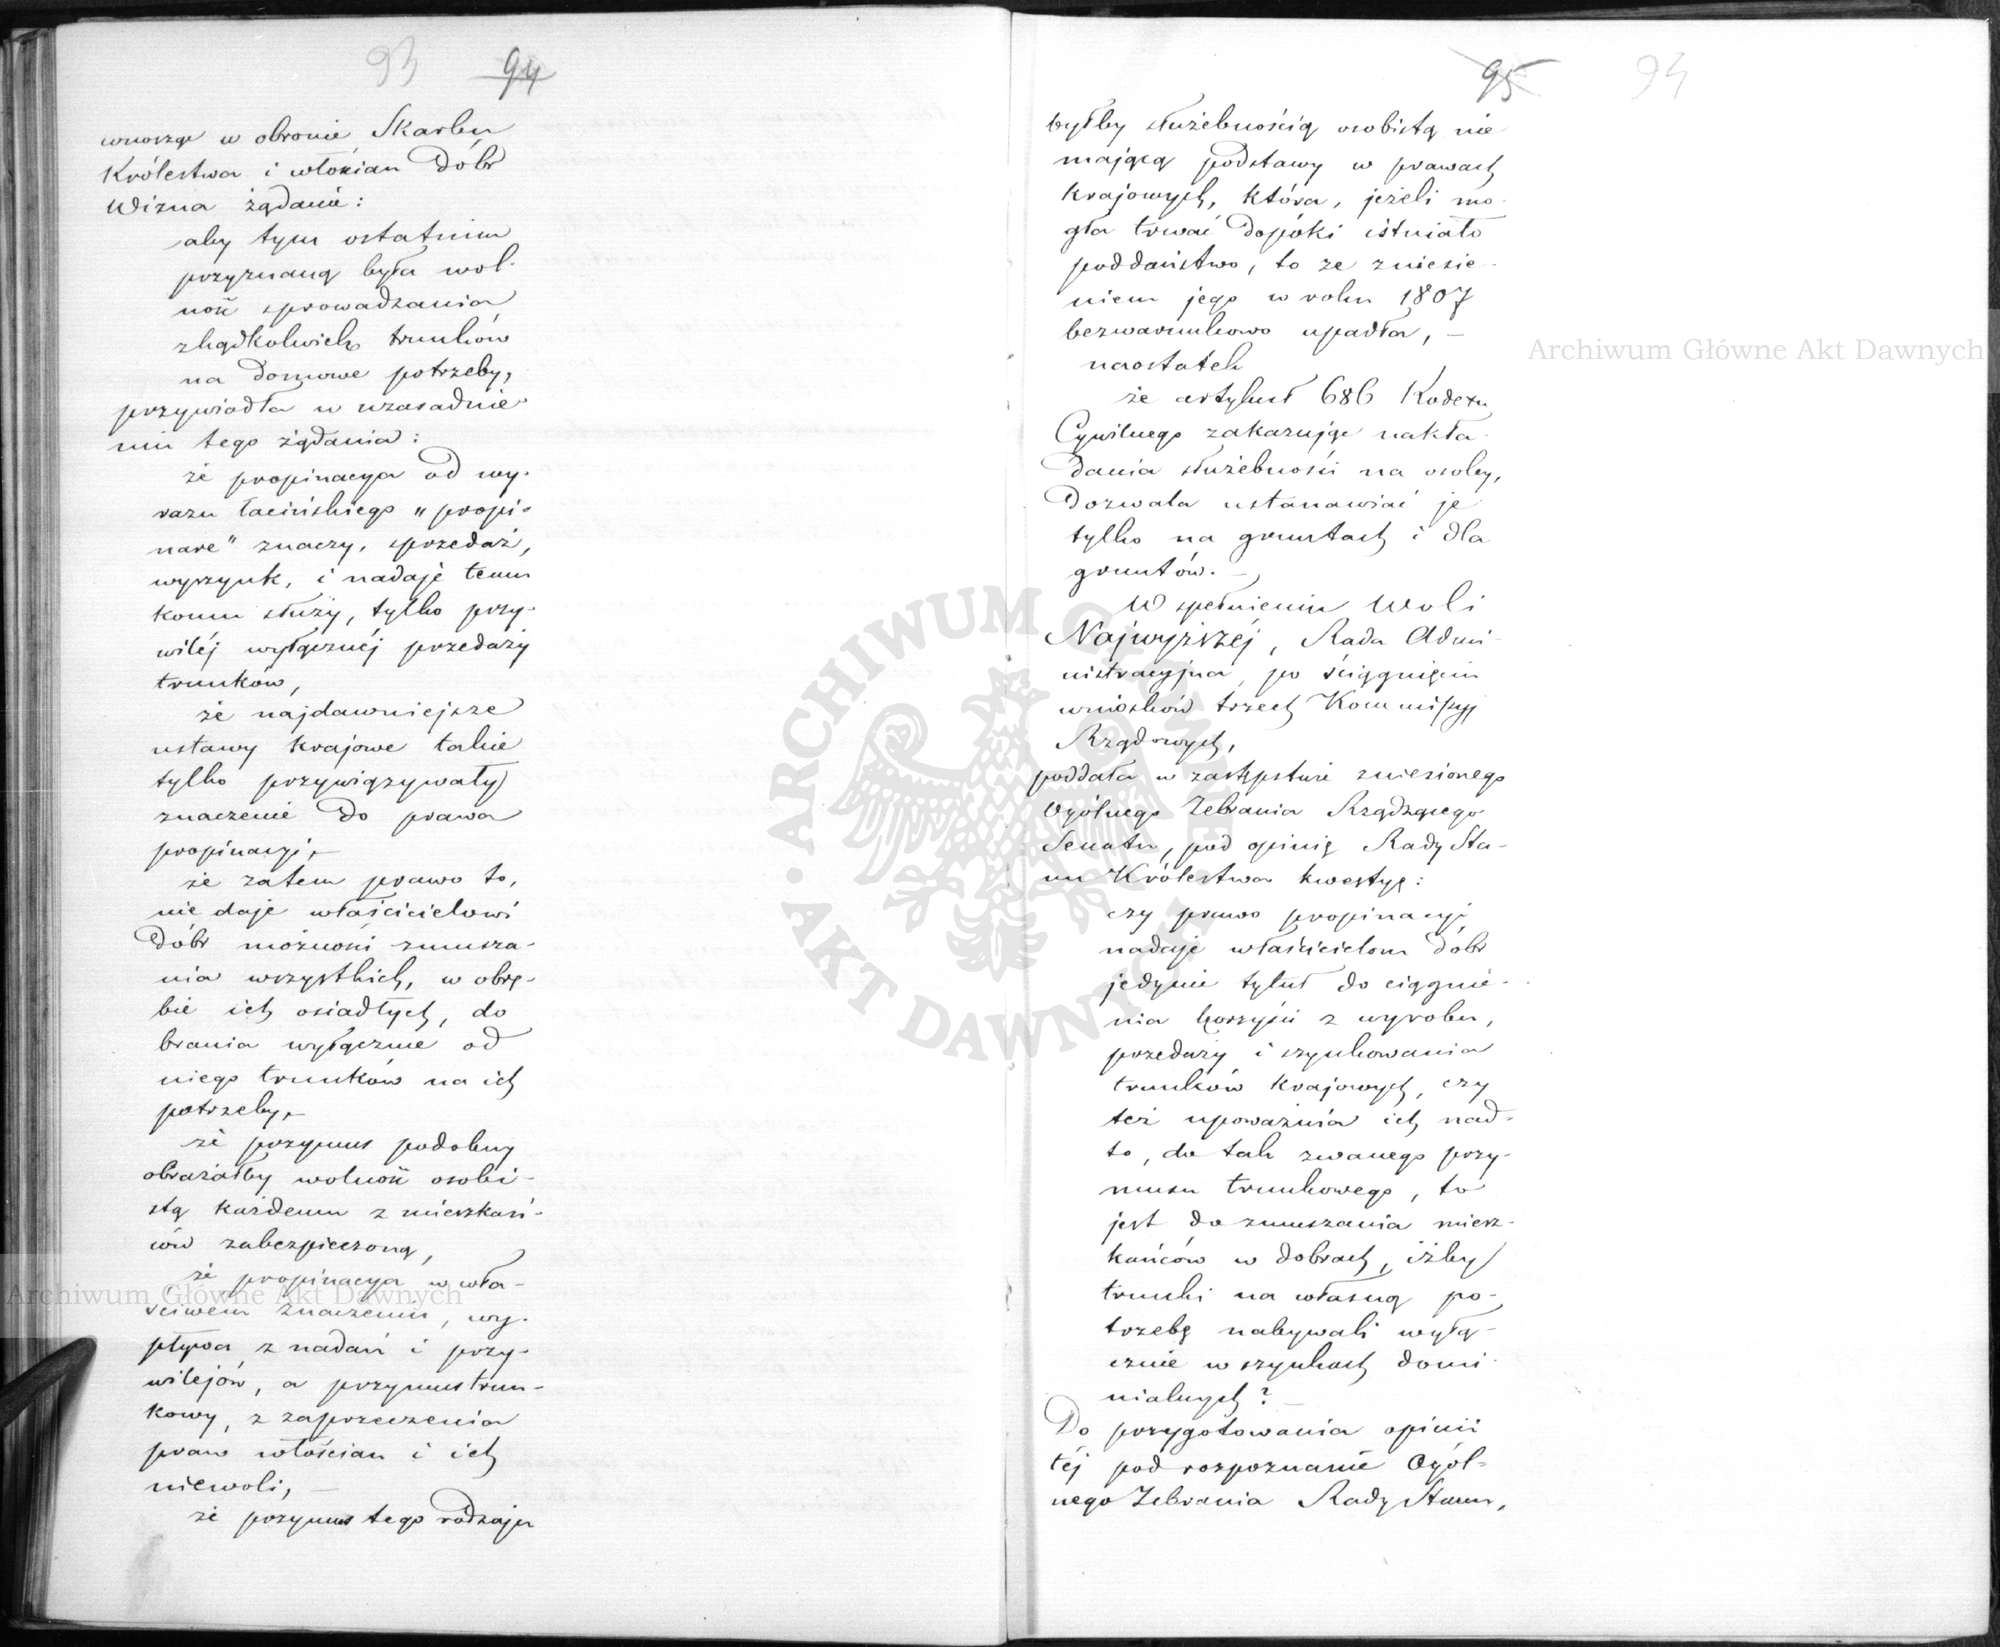 93 94
wnosząc w obronie Skarbu
Królestwa i włościan Dóbr
Wizna żądanie:
aby tym ostatnim
przyznaną była wol-
ność sprowadzania
zkądkolwiek trunków
na domowe potrzeby,
przywiodła w uzasadnie-
niu tego żądania:
że propinacya od wy-
razu łacińskiego "propi-
nare" znaczy, sprzedaż,
wyszynk, i nadaje temu
komu służy, tylko przy-
wilej wyłącznéj przedaży
trunków,
że najdawniejsze
ustawy krajowe takie
tylko przywiązywały
znaczenie do prawa
propinacyi,—
że zatem prawo to,
nie daje właścicielowi
Dóbr możności zmusza-
nia wszystkich, w obrę-
bie ich osiadłych, do
brania wyłącznie od
niego trunków na ich
potrzeby,—
że przymus podobny
obrażałby wolność osobi-
stą każdemu z mieszkań-
ców zabezpieczoną,
że propinacya w wła-
ściwem znaczeniu, wy-
pływa z nadań i przy-
wilejów, a przymus trun-
kowy, z zaprzeczenia
praw włościan i ich
niewoli,—
że przymus tego rodzaju
95 94
byłby służebnością osobistą nie
mającą podstawy w prawach
krajowych, która, jeżeli mo-
gła trwać dopóki istniało
poddaństwo, to ze zniesie-
niem jego w roku 1807
bezwarunkowo upadła,—
naostatek
że artykuł 686 Kodexu
Cywilnego zakazując nakła-
dania służebności na osoby,
dozwala ustanawiać je
tylko na gruntach i dla
gruntów.—
W spełnieniu Woli
Najwyższéj, Rada Admi-
nistracyjna, po ściągnięciu
wniosków trzech Kommissyj
Rządowych,
poddała w zastępstwie zniesionego
Ogólnego Zebrania Rządzącego
Senatu, pod opinię Rady Sta-
nu Królestwa kwestyę:
czy prawo propinacyi
nadaje właścicielom dóbr
jedynie tytuł do ciągnie-
nia korzyści z wyrobu,
przedaży i szynkowania
trunków krajowych, czy
też upoważnia ich nad-
to, do tak zwanego przy-
musu trunkowego, to
jest do zmuszania miesz-
kańców w dobrach, iżby
trunki na własną po-
trzebę nabywali wyłą-
cznie w szynkach domi-
nialnych?—
Do przygotowania opinii
téj pod rozpoznanie Ogól-
nego Zebrania Rady Stanu,
Archiwum Główne Akt Dawnych
Archiwum Główne Akt Dawnych
ARCHIWUM GŁÓWNE AKT DAWNYCH